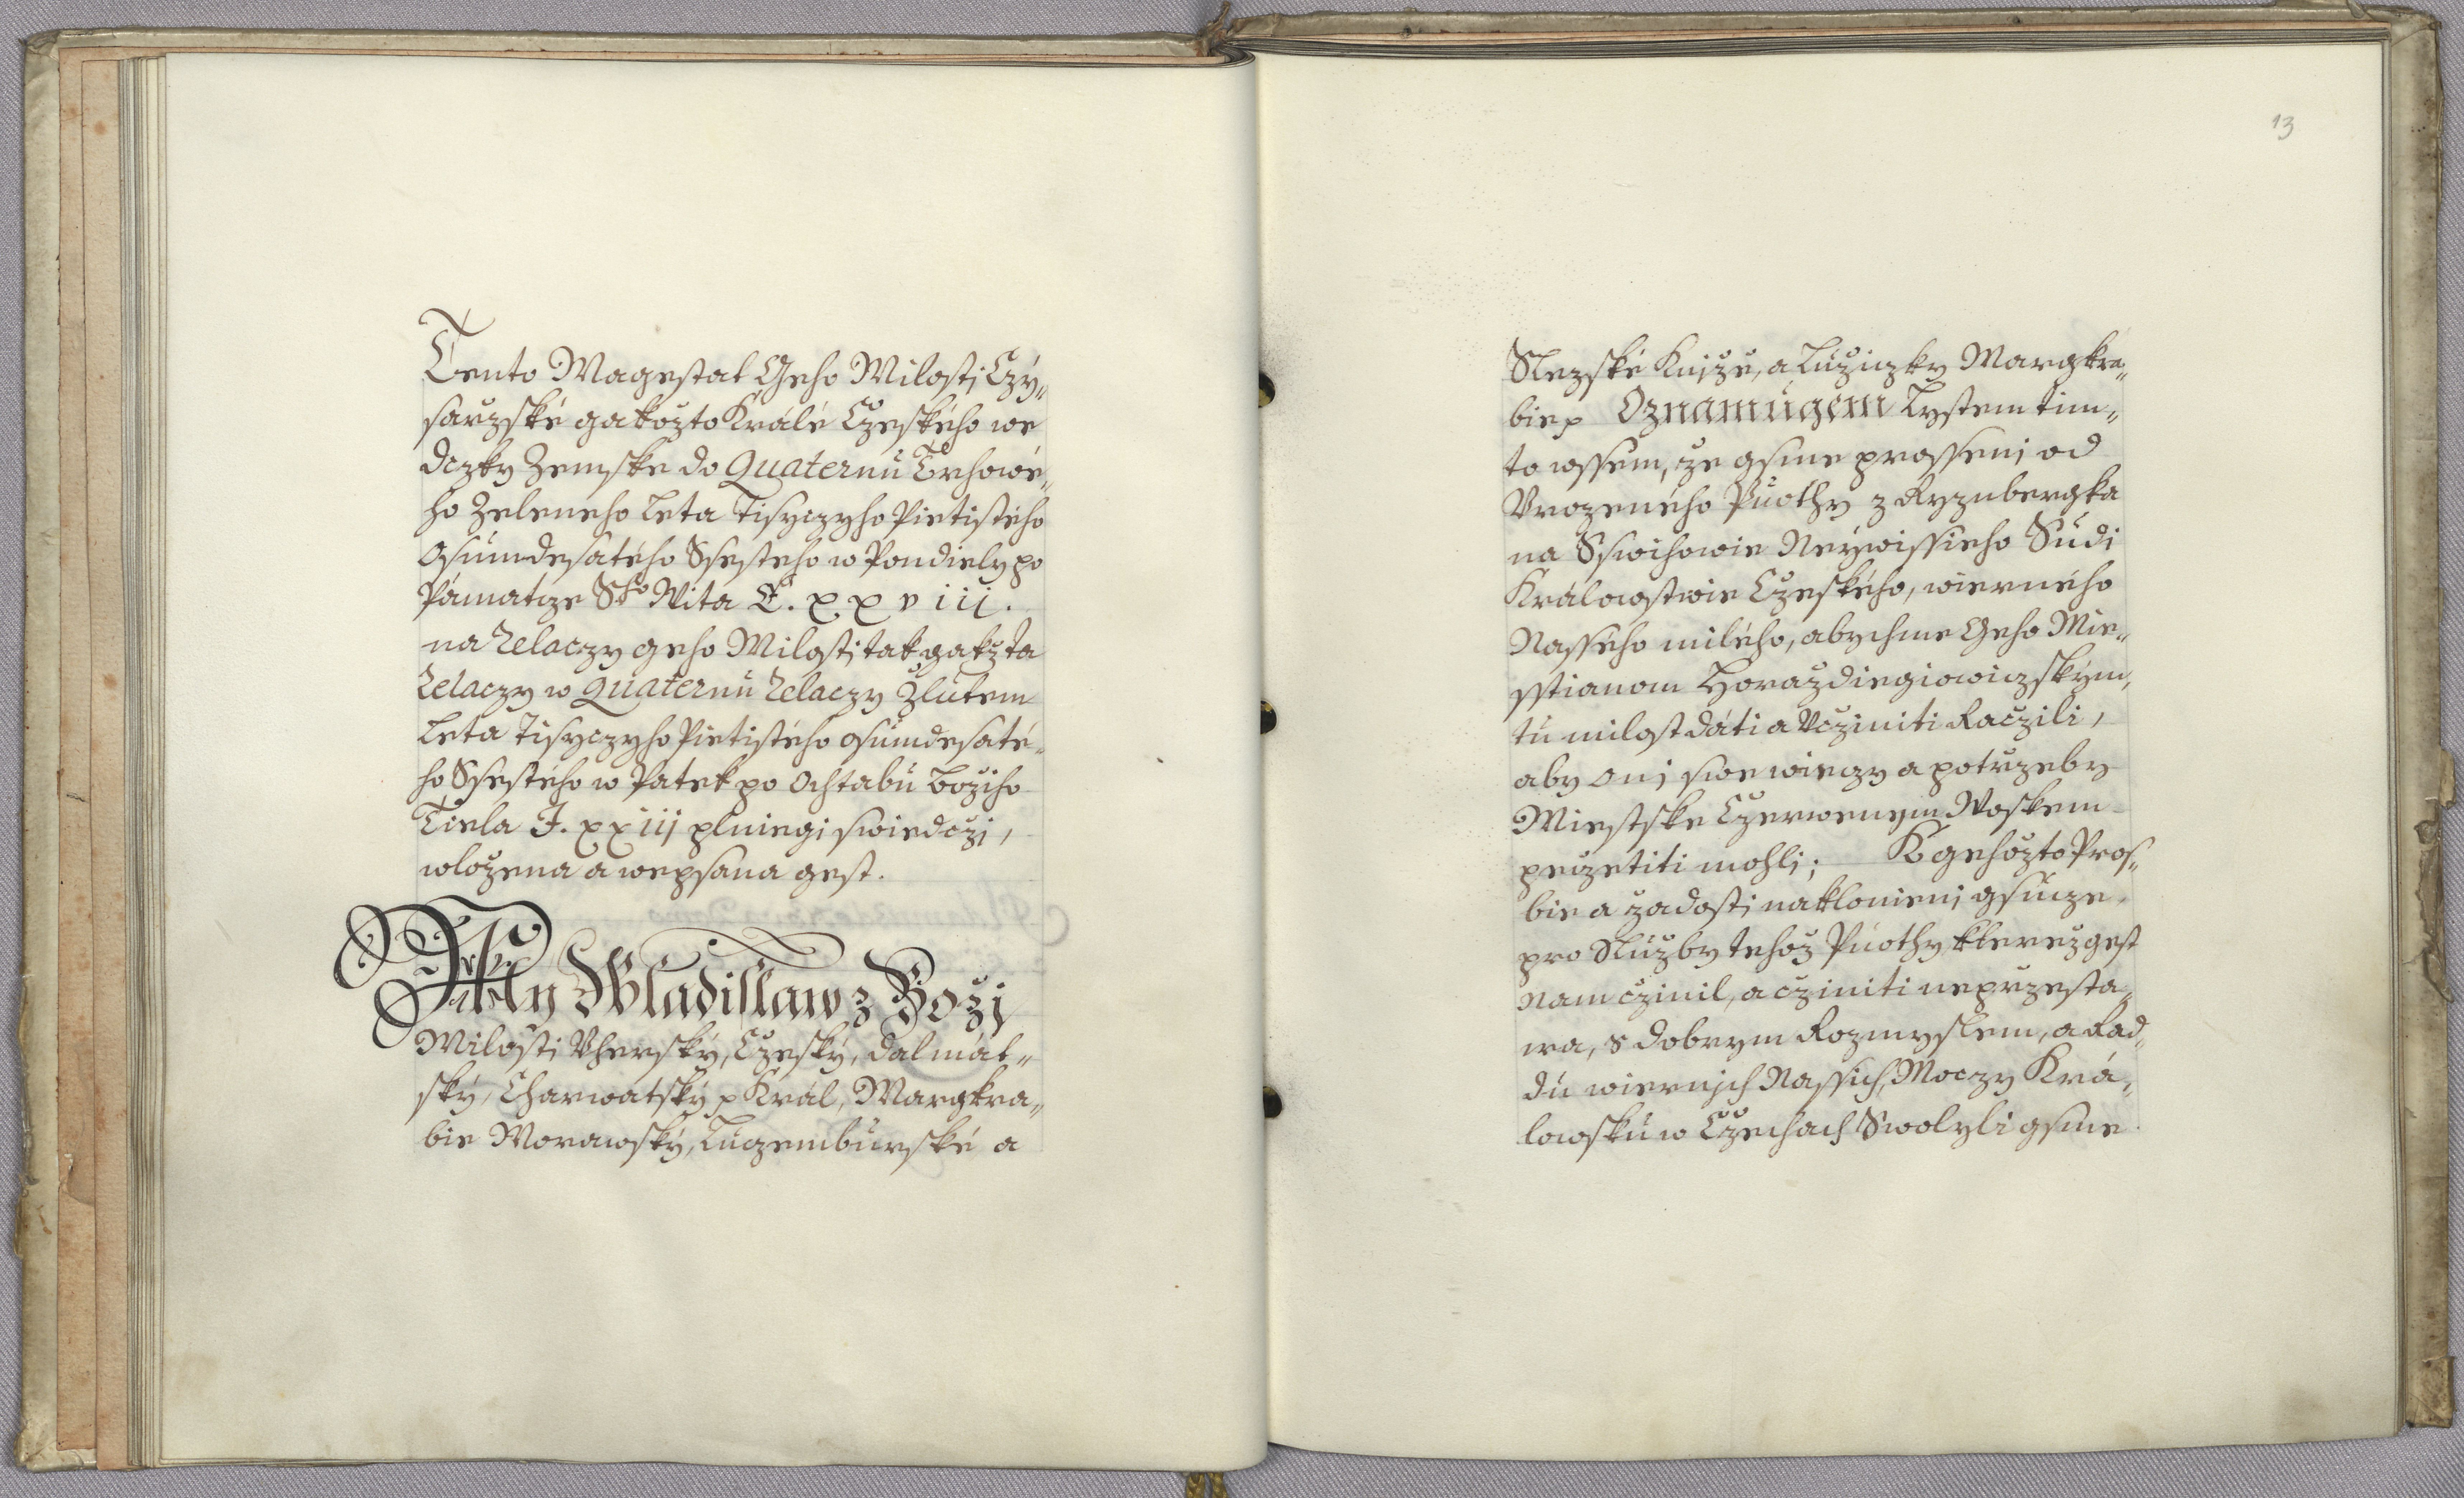 Tento Magestat Geho Milosti Czý„
sarzské gakožto Králé Czeského we
dczky Zemske do Quaternu Trhowé„
ho Zeleneho Leta Tisyczyho Pietistého
Osumdesatého Ssesteho w Pondiely po
Pámatcze Sho Wita E. xxviii.
na Relaczy geho Milosti tak gakž ta
Relaczy w Quaternu Relaczy Žlutem
Leta Tisyczyho Pietistého osumdesaté„
ho Ssestého w Patek po Ochtabu Božiho
Tiela J. xxiij plniegi swiedczi,
wložena a wepsana gest.
My Wladislaw z Boži
Milosti Vherský, Czeský, Dalmát„
ský, Charwatský p Král, Margkra„
bie Morawský, Luczemburské a
13
Slezské Knjže, a Lužiczky Margkra„
bie p Oznamugem Lystem tim„
to wssem, že gsme prosseni od
Vrozeného Puothy z Ryznbergka
na Sswihowie Neýwissieho Sudi
Králowstwie Czeského, wierného
Nasseho milého, abychme Geho Mie„
sstianom Horaždiegiowiczským,
tu milost dáti a Vcziniti Raczili,
aby oni swe wieczy a potrzeby
Miestske Czerwenym Woskem
peczetiti mohli; K gehožto Pros„
bie a žadosti naklonieni gsucze,
pro Služby tehož Puothy, kterež gest
Nam czinil, a cziniti neprzesta„
wa, s dobrym Rozmyslem, a Rad„
du wiernjch Nassich, Moczy Krá„
lowsku w Czechach Swolyli gsme